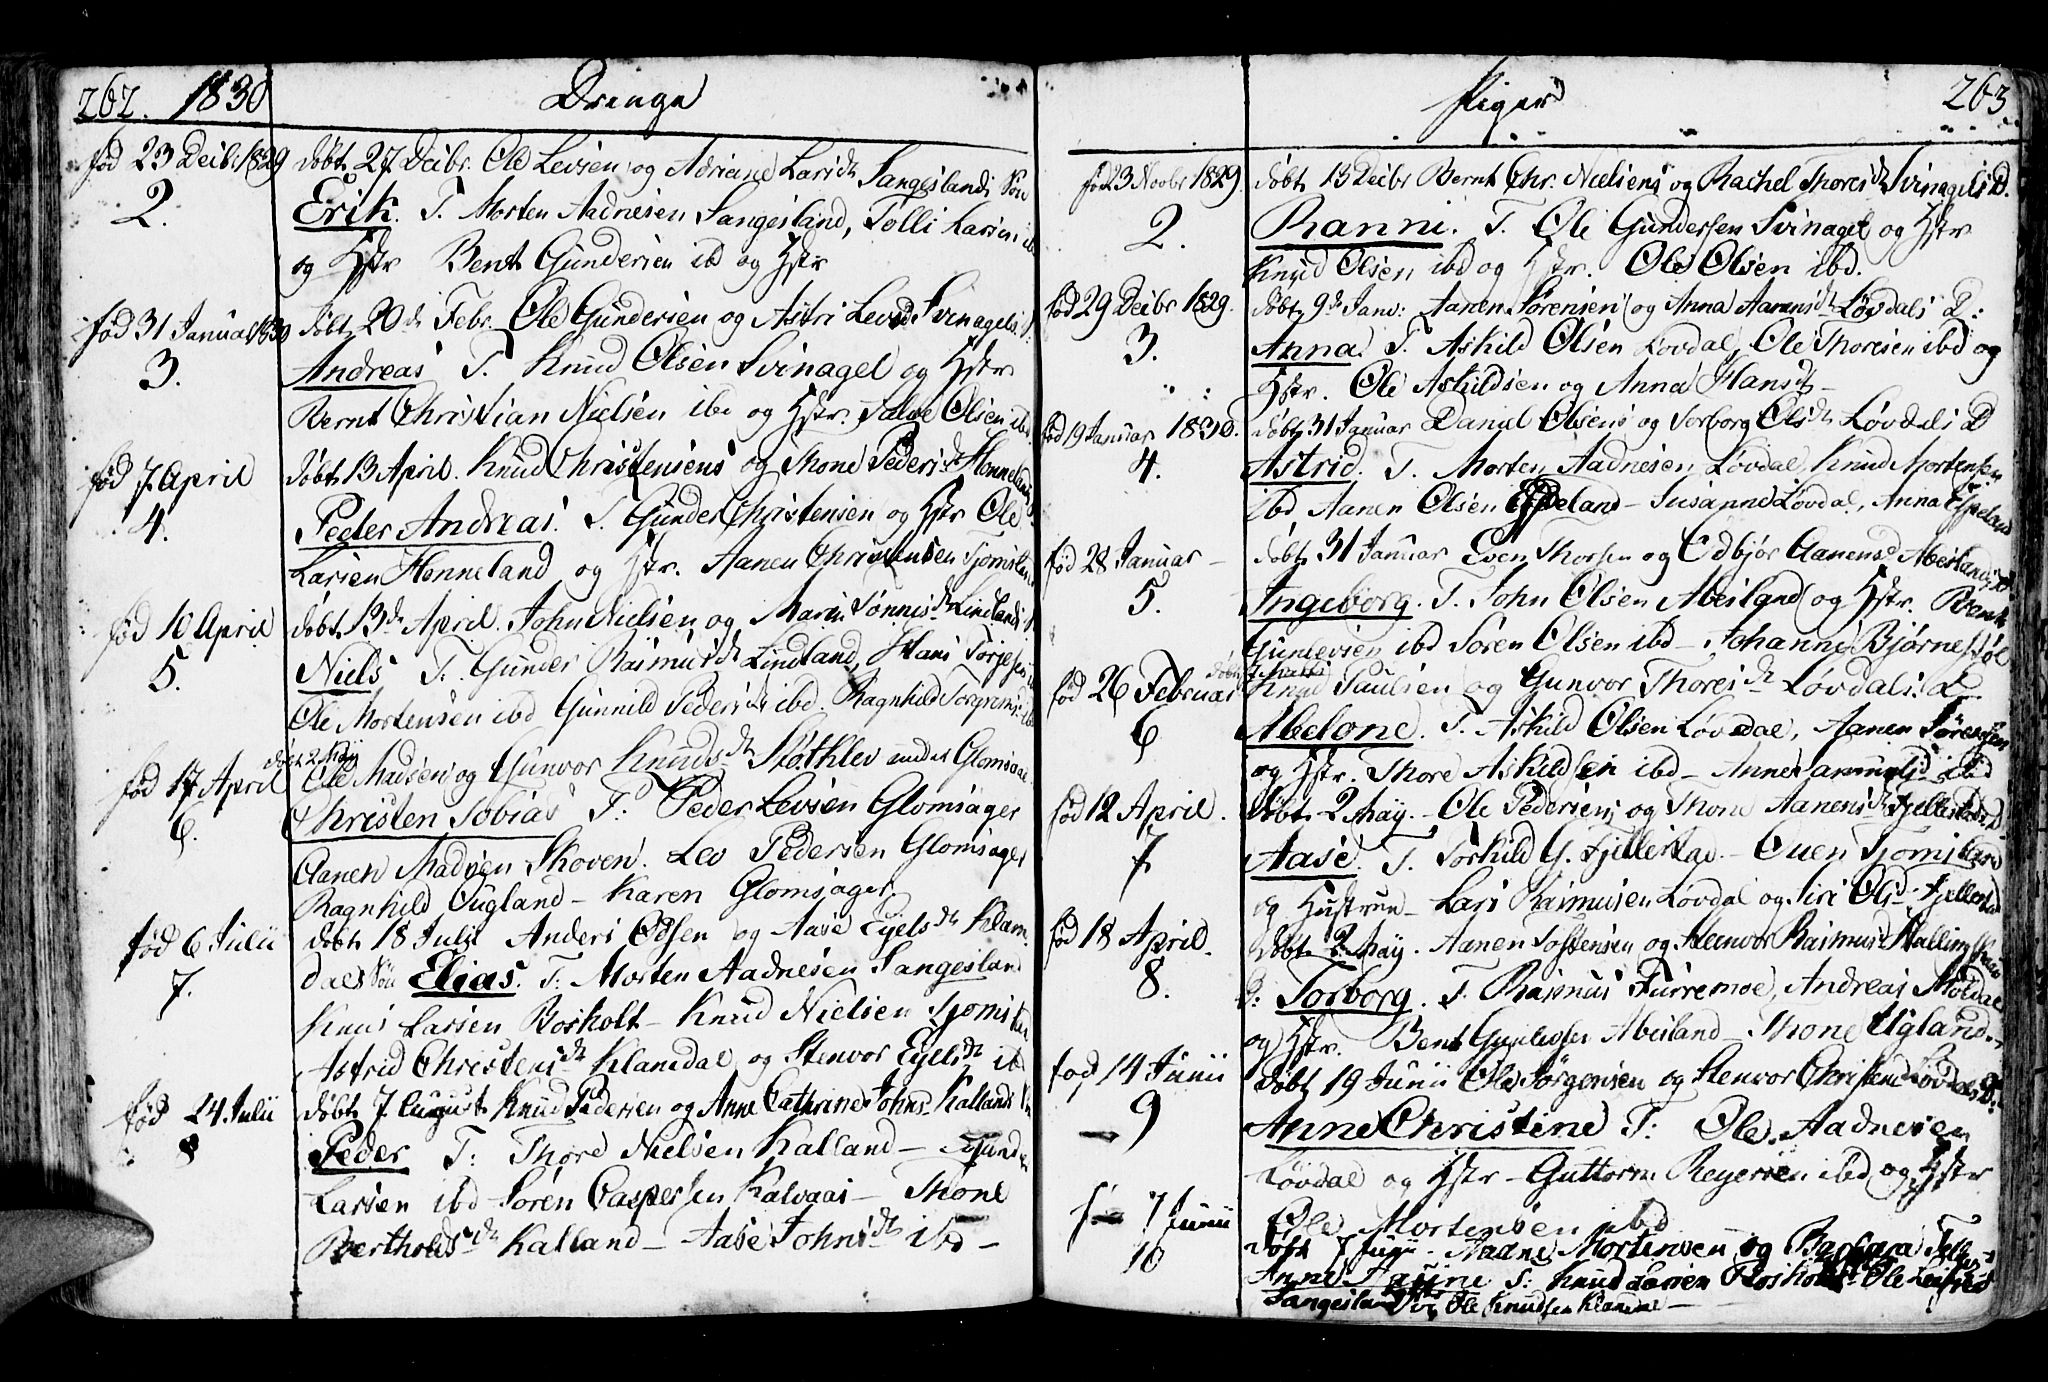 262. 1830 Drenge
fød 23 Decbr 1829 døbt 27 Decbr. Ole Levsen og Adriane Larsdr Sangeslands Søn
2. Erik. T. Morten Aadnesen Sangesland, Tolli Larsen ibd
og Hstr Bent Gundersen ibd og Hstr
fød 31 Januar 1830 døbt 20de Febr. Ole Gundersen og Astri Levsd Svinagels S:
3. Andreas T. Knud Olsen Svinagel og Hstr
Bernt Christian Nielsen ibd og Hstr. Salve Olsen ibd
fød 7. April døbt 13 April. Knud Christensens og Thone Pedersdr Honnelands
4. Peder Andreas. T. Gunder Christensen og Hstr Ole
Larsen Honneland og Hstr. Aanen Christensen Tjomsland
fød 10 April døbt 13de April. John Nielsen og Maren Tønnisdr Lindlands S
5. Niels T. Gunder Rasmusdr Lindland, Hans Torjesen
Ole Mortensen ibd Gunnild Pedersdr ibd. Ragnhild Torgrims ibd
døbt 2 Maÿ
fød 17 April Ole Madsen og Gunvor Knudsdr Støthlev under Glomsage
6. Christen Tobias T. Peder Levsen Glomsager
Aanen Madsen Skoven. Lev Pedersen Glomsager
Ragnhild Ougland – Karen Glomsager.
fød 6 Julii døbt 18 Julii Anders Olsen og Aase Eyelsdr Klam
7. dals Søn Elias. T: Morten Aadnesen Sangesland
Knud Larsen Rosholt – Knud Nielsen Tjomsland
Astrid Christensdr Klamdal og Stenvor Eyelsdr ibd
fød 24. Julii døbt 7 August Knud Pedersen og Anne Cathrine Johns. Kallands
8 Peder T: Thore Nielsen Kalland – Gunder
Larsen ibd – Søren Caspersen Kalvaas – Thone
Bertholdsdr Kalland – Aase Johnsdr ibd –
Piger 263
fød 23 Novbr 1829 døbt 13 Decbr Bernt Chr. Nielsens og Rachel Thoresdr Svinagels D.
2. Ranni. T. Ole Gundersen Svinagel og Hstr
Knud Olsen ibd og Hstr. Ole Olsen ibd.
fød 29 Decbr 1829. døbt 9de Janv: Aanen Sørensen og Anna Aanensdr Løvdals D:
3. Anna. T. Askild Olsen Løvdal, Ole Thoresen ibd og
Hstr. Ole Askildsen og Anna Hansdr –
fød 19 Januar 1830. døbt 31 Januar Daniel Olsens og Torborg Olsdr Løvdals D
4. Astrid. T. Morten Aadnesen Løvdal, Knud Mortensen
ibd Aanen Olsen Espeland – Susanne Løvdal, Anna Espeland
fød 28 Januar – døbt 31 Januar Even Thorsen og Edbjør Aanensd Abeslands D
5. Ingeborg. T. John Olsen Abesland og Hstr. Bent
Gundersen ibd Søren Olsen ibd – Johanne Bjørnestøl
fød 26 Februar Knud Paulsen og Gunvor Thoresdr Løvdals. D
6 Abelone. T. Askild Olsen Løvdal, Aanen Sørensen
og Hstr. Thore Askildsen ibd – Anne ibd
fød 12 April. døbt 2 Maÿ. – Ole Pedersens og Thone Aanensdr Fjellestads D
7 Aase. T. Torkild G. Fjellestad. – Ouen Tjomsland
og Hustrue – Lars Rasmusen Løvdal og Siri Olsd. Fjellestad
fød 18 April. døbt 2. Maÿ. Aanen Tostensen og Stenvor Rasmusd Halling
8. D: Torborg. T. Rasmus Furremoe, Andreas
og Hstr. Bent Gundersen Abesland – Thone Ugland –
fød 14 Junii døbt 19 Junii Ole Jørgensen og Stenvor Christensd Løvdals D.
9 Anne Christine T: Ole Aadnesen
Løvdal og Hstr – Guttorm Reyersen ibd og Hstr
Ole Mortensen ibd
f – 7 Junii døbt 7 – Aadne Mortensen og Barbara
10 Anne T: Knud Larsen Rosholt – Ole
Sangesland Ole Knudsen Klamdal –